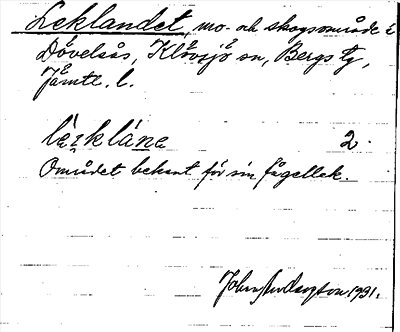 Leklandet, mo- och skogsområde i
Dövelsås, Klövsjö sn, Bergs tg,
Jämtl. l.
lèi̯kláne 2.
Området bekant för sin fågellek.
John Andersson. 1931.